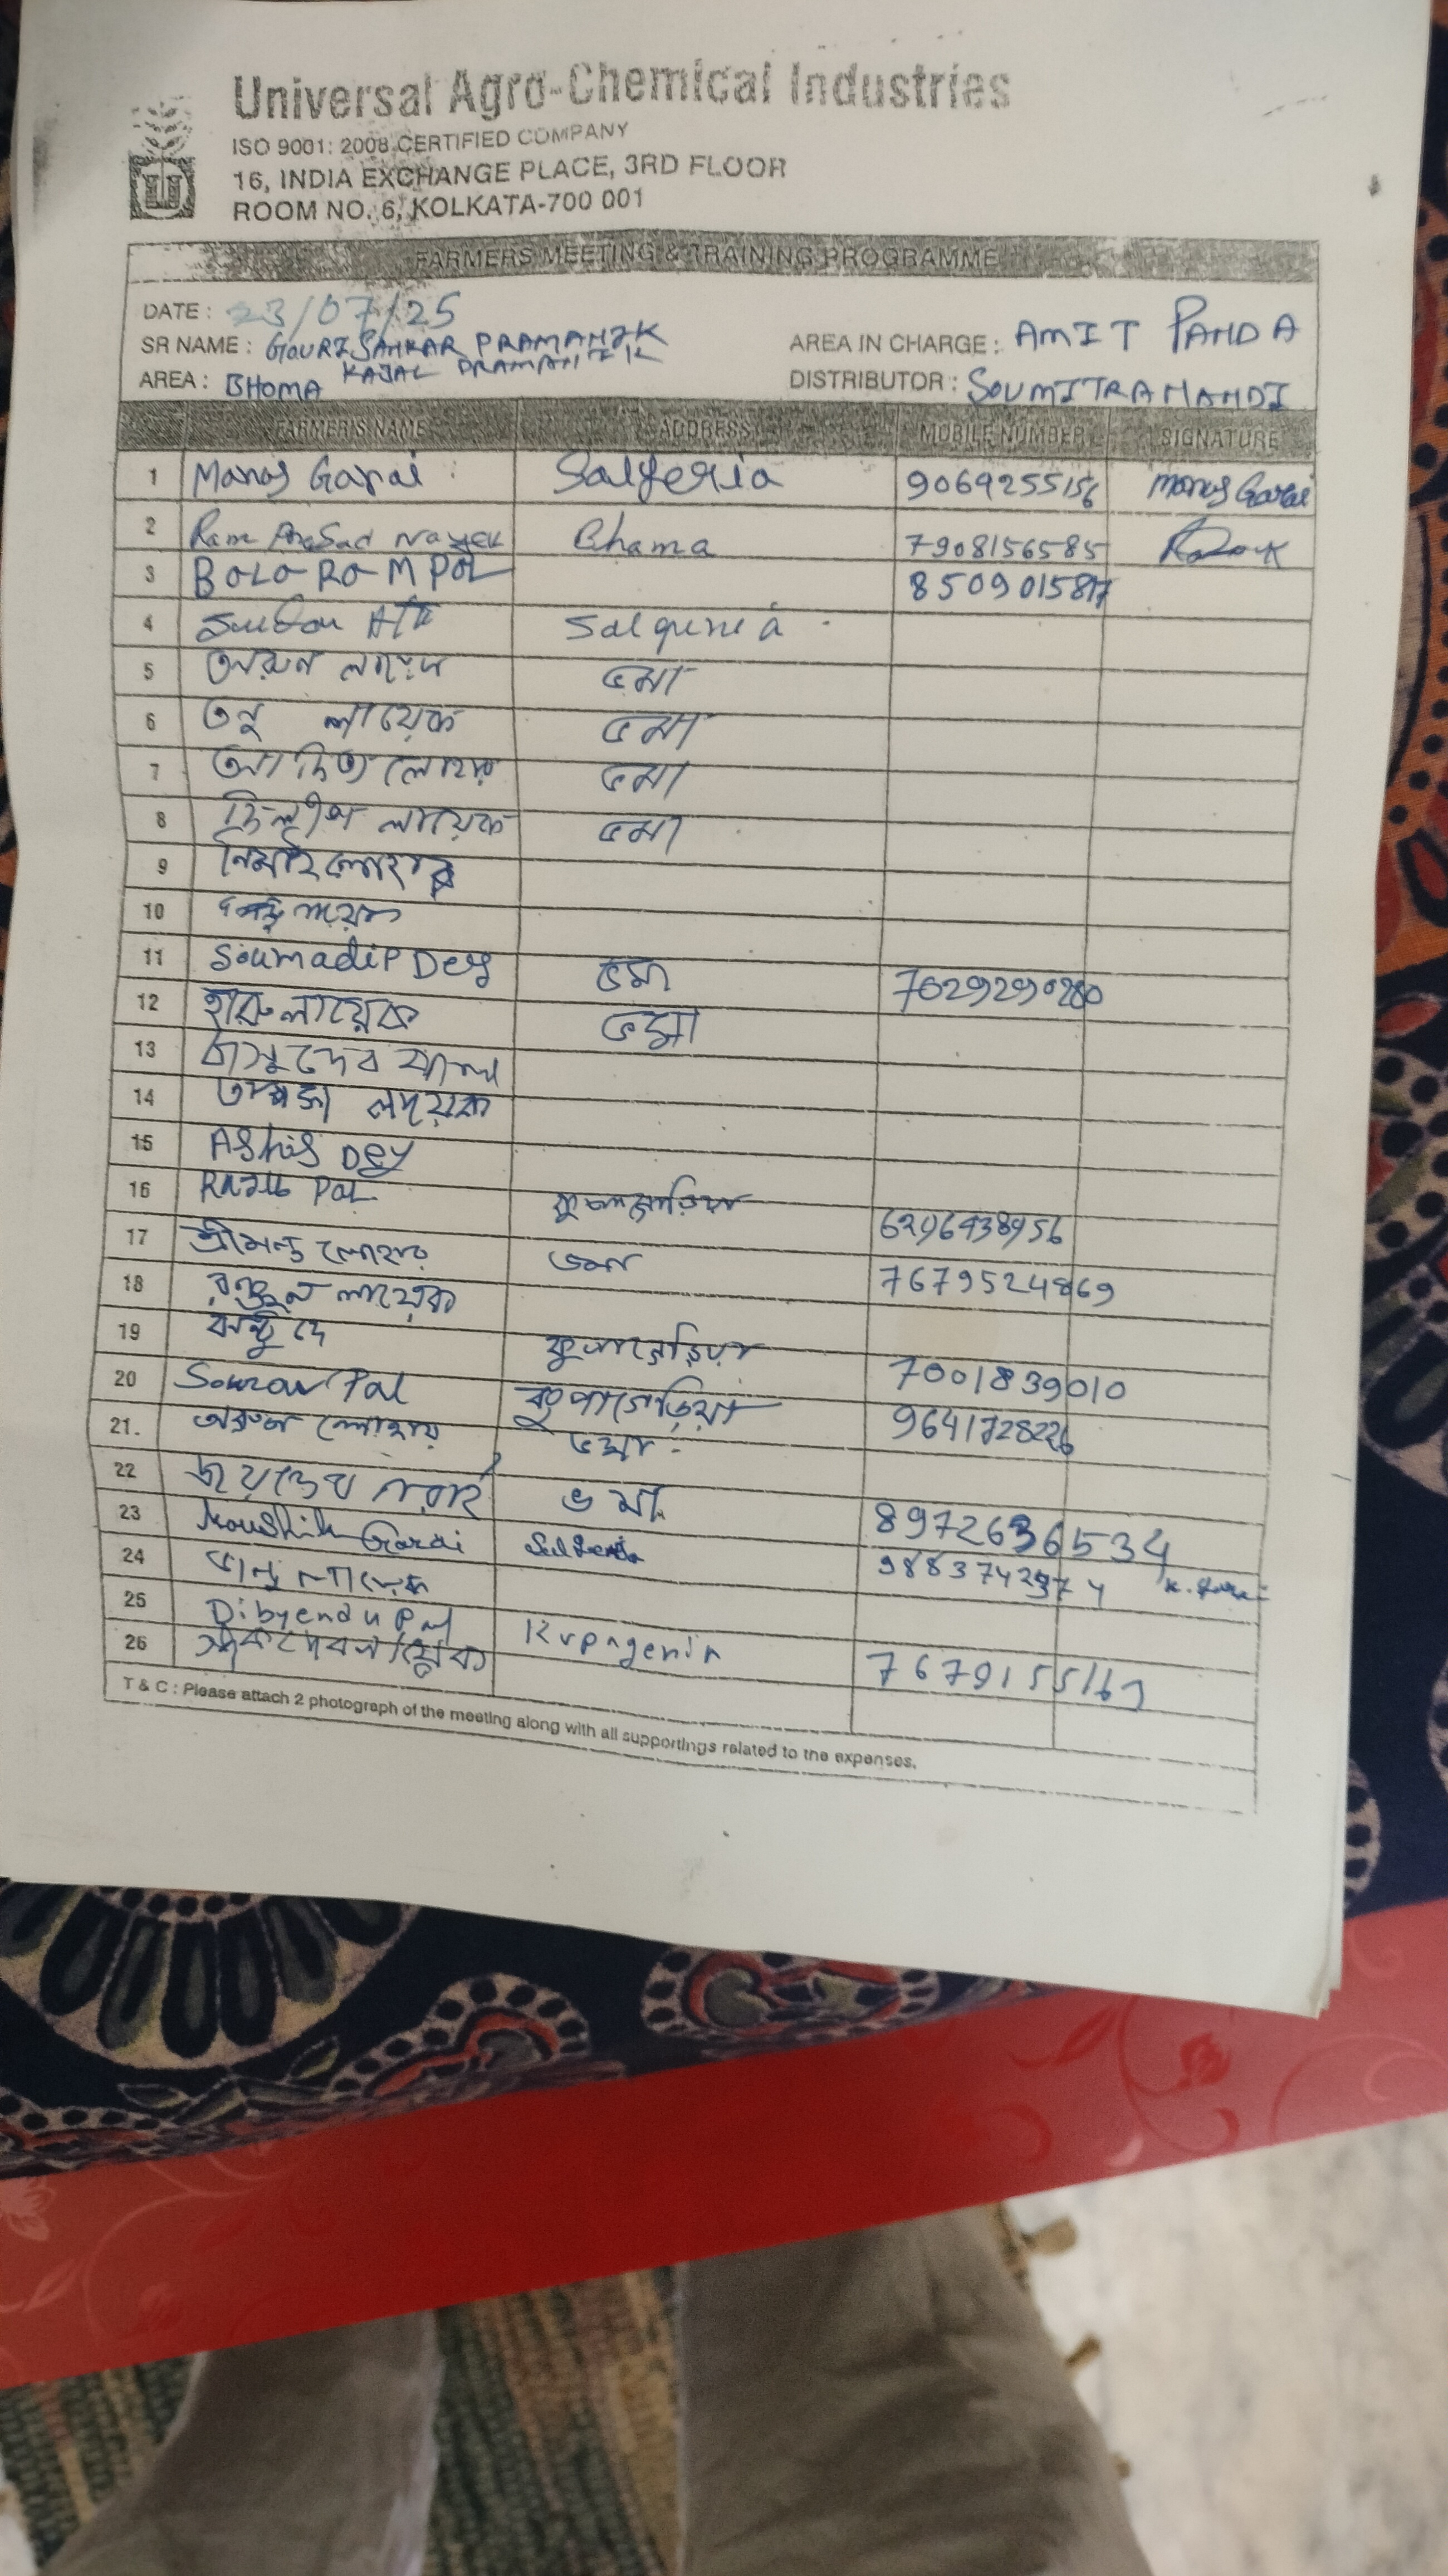 Universal Agro-Chemical Industries
ISO 9001: 2008 CERTIFIED COMPANY
16, INDIA EXCHANGE PLACE, 3RD FLOOR
ROOM NO. 6, KOLKATA-700 001
FARMERS MEETING & TRAINING PROGRAMME
DATE : 23/07/25
SR NAME : GOURI SANKAR PRAMANIK AREA IN CHARGE : AMIT PANDA
KAJAL PRAMANIK
AREA : BHOMA DISTRIBUTOR : SOUMITRA NANDI
FARMER'S NAME ADDRESS MOBILE NUMBER SIGNATURE
1 Manas Garai Salgeria 9069255156 Manas Garai
2 Ram Prasad Nayek Bhama 7908156585
3 BOLORAM POL 8509015817
4 Salgeria
5 অরুন ভমা
6 তনু লায়েক ভমা
7 আদিত্য লোহার ভমা
8 দিলীপ লায়েক ভমা
9 নিমাই লোহার
10
11 Soumadip Dey ভমা 7029290280
12 হারু লায়েক ভমা
13 বাসুদেব
14 লায়েক
15 Ashis Dey
16 Pal 6296438956
17 শ্রীমন্ত লোহার ভমা 7679524869
18 লায়েক
19 দে 7001839010
20 Sourav Pal কুপাগেড়িয়া 9641728226
21. অরুন লোহার ভমা
22 জয়দেব ভমা 8972636534
23 Koushik Garai 9883742974
24 লায়েক
25 Dibyendu Pal Kupageria 7679155167
26 লায়েক
T & C : Please attach 2 photograph of the meeting along with all supportings related to the expenses.